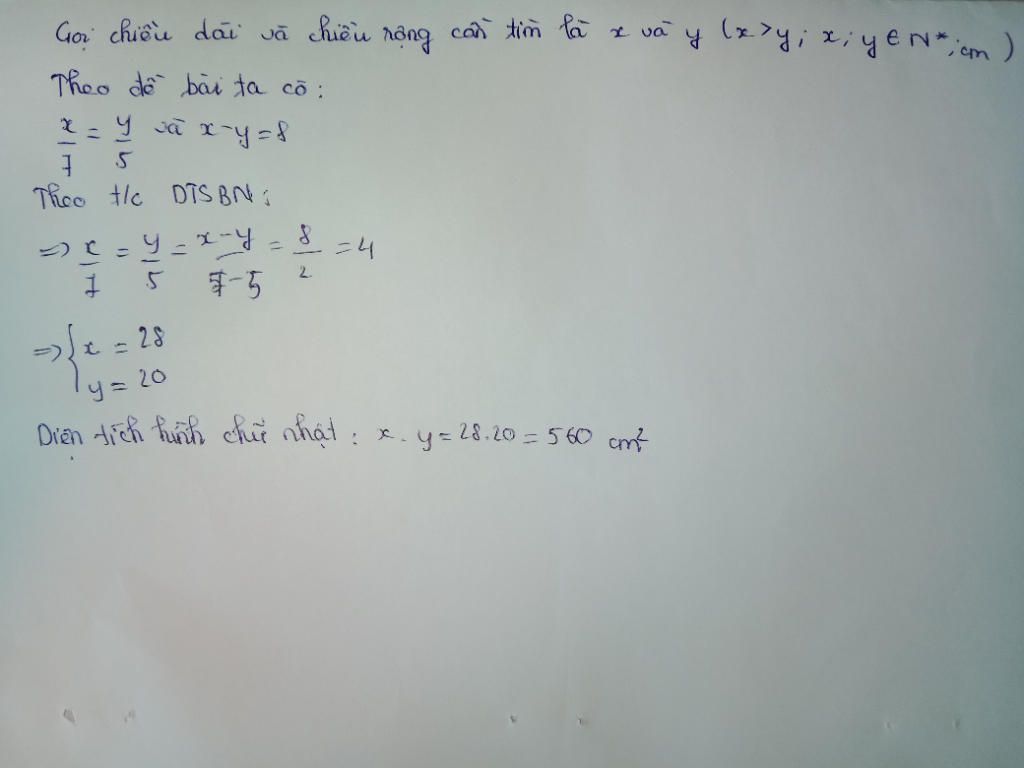 Gọi chiều dài và chiều rộng cần tìm là x và y (x>y; x; y ∈ N*; cm)
Theo đề bài ta có:
x/7 = y/5 và x-y=8
Theo t/c DTSBN:
=> x/7 = y/5 = x-y/7-5 = 8/2 = 4
=> { x = 28
y = 20
Diện tích hình chữ nhật: x.y = 28.20 = 560 cm²